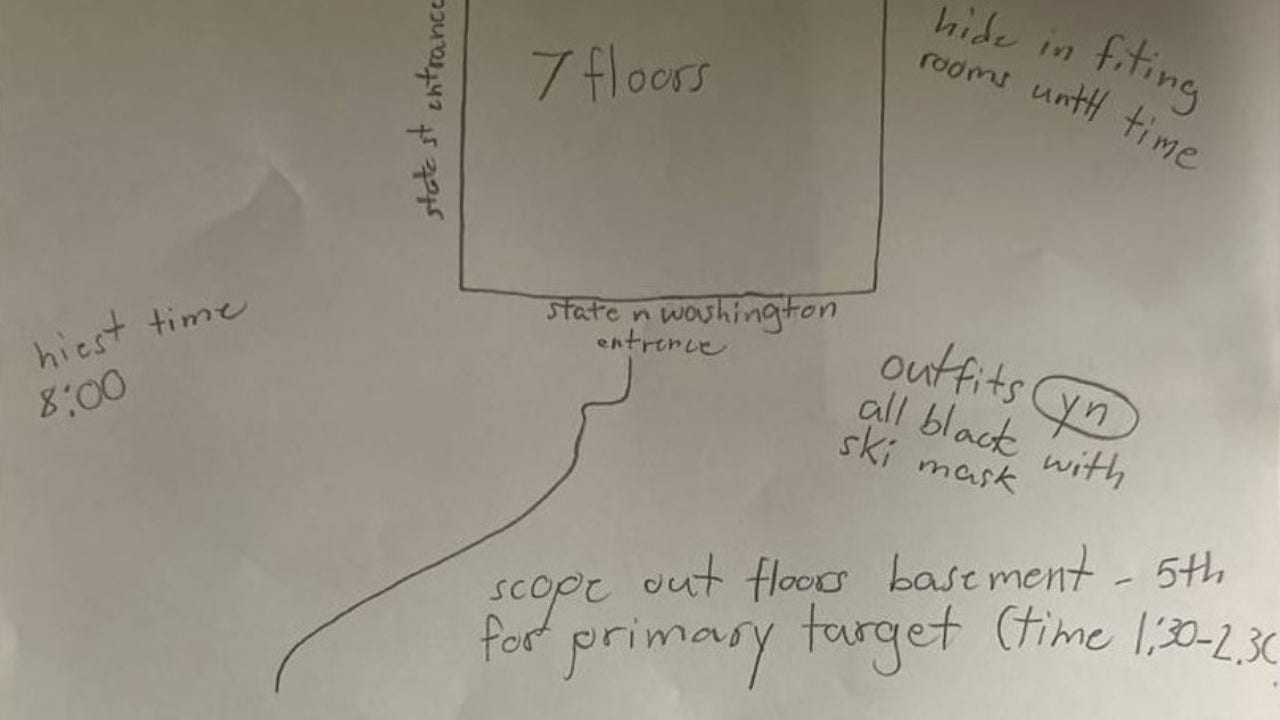 state st entrance
7 floors
hide in fiting
rooms until time
state n washington
entrence
hiest time
8:00
outfits yn
all black with
ski mask
scope out floors basement - 5th
for primary target (time 1:30-2.30